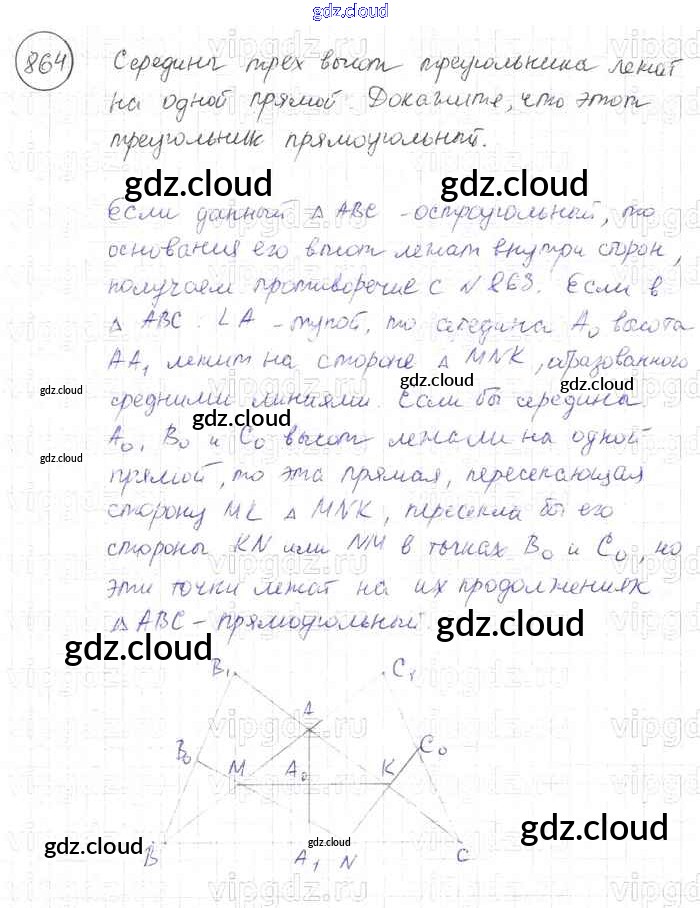 gdz.cloud
864
Середины трёх высот треугольника лежат
на одной прямой. Докажите, что этот
треугольник прямоугольный.
gdz.cloud gdz.cloud
Если данный △ ABC - остроугольный, то
основания его высот лежат внутри сторон,
получаем противоречие с №863. Если в
△ ABC: ∠A - тупой, то середина A₀ высота
AA₁ лежит на стороне △ MNK, образованного
gdz.cloud gdz.cloud gdz.cloud
средними линиями. Если бы середина
gdz.cloud
A₀, B₀ и C₀ высот лежали на одной
gdz.cloud
прямой, то эта прямая, пересекающая
сторону MK △ MNK, пересекла бы его
стороны KN или NM в точках B₀ и C₀, но
эти точки лежат на их продолжениях
△ ABC - прямоугольный.
gdz.cloud
gdz.cloud
B₁ C₁
A
B₀ C₀
M A₀ K
gdz.cloud gdz.cloud gdz.cloud
B A₁ N C